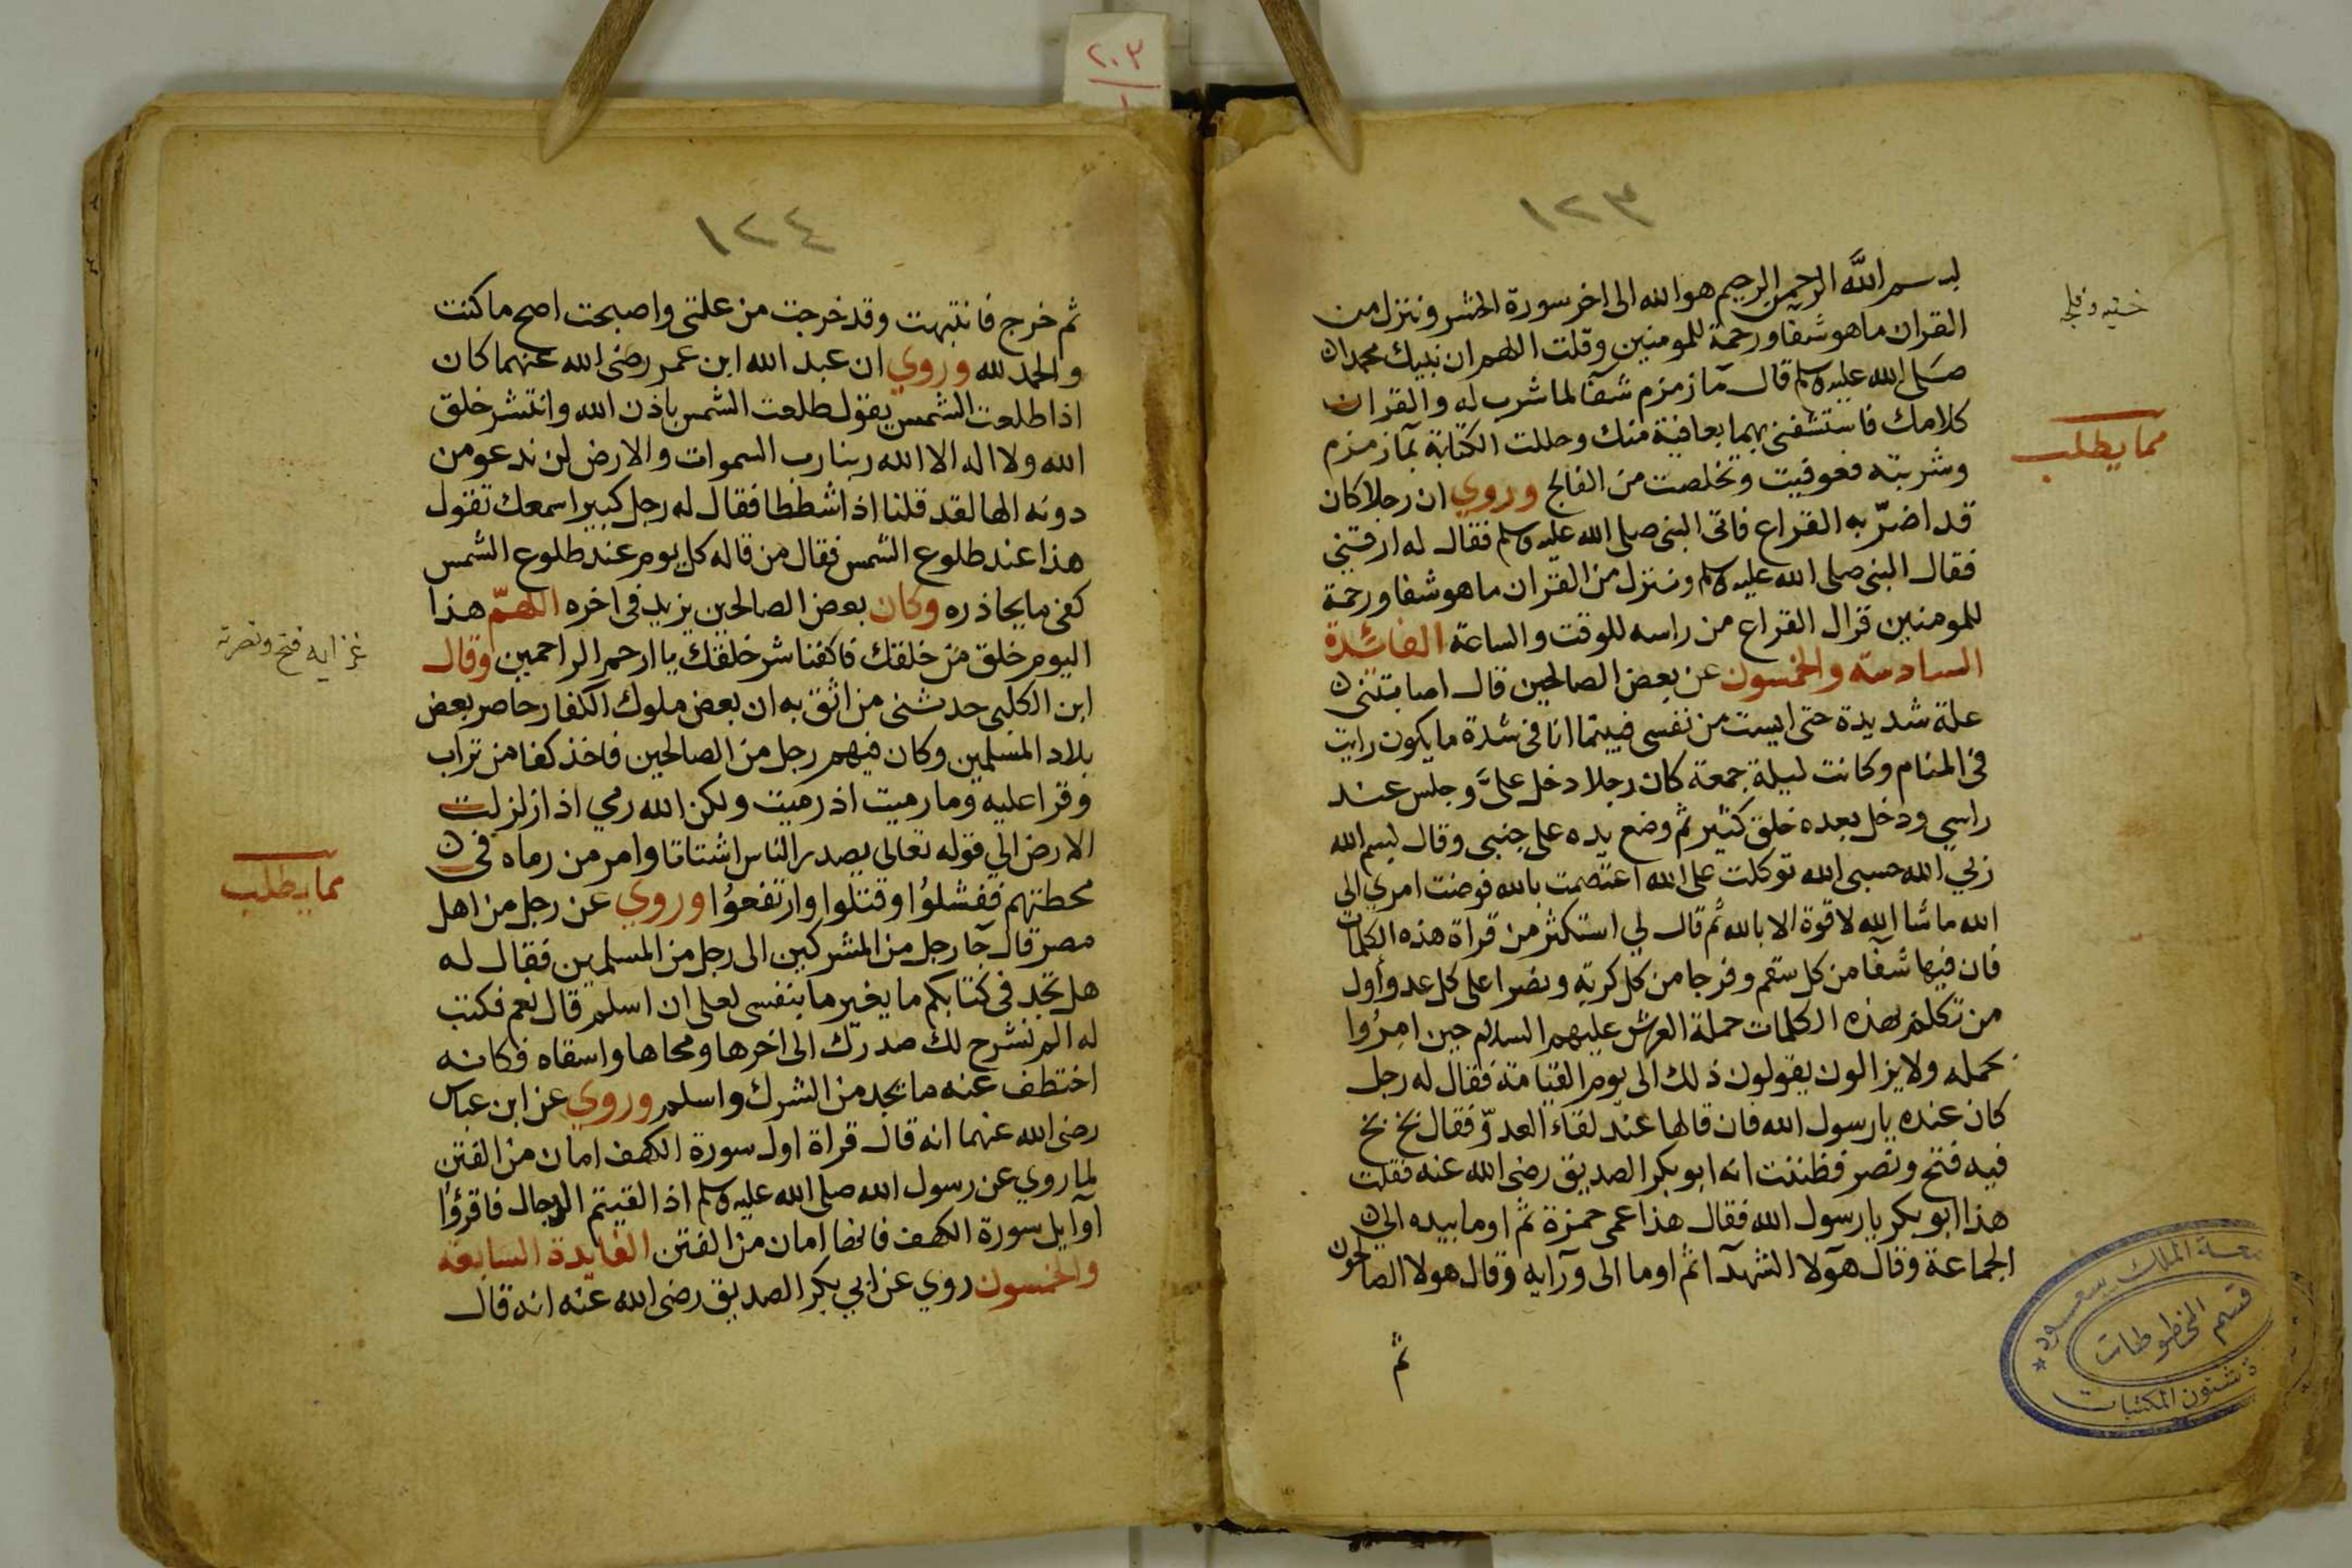 ٢٠٣
١
١٢٣
بسم الله الرحمن الرحيم هو الله الى اخر سورة الحشر وننزل من
القران ما هو شفا ورحمة للمومنين وقلت اللهم ان نبيك محمدا
صلى الله عليه وسلم قال مآ زمزم شفآ لما شرب له والقران
كلامك فاستشفنى بهما بعافية منك وحللت الكتابة بمآ زمزم
وشربته فعوفيت وتخلصت من الفالج وروي ان رجلا كان
قد اضرّ به القراع فاتى النبى صلى الله عليه وسلم فقال له ارقينى
فقال النبى صلى الله عليه وسلم وننزل من القران ما هو شفا ورحمة
للمومنين قزال القراع من راسه للوقت والساعة الفائدة
السادسة والخمسون عن بعض الصالحين قال اصابتنى
علة شديدة حتى ايست من نفسى فبينما انا فى شدة ما يكون رايت
فى المنام وكانت ليلة جمعة كان رجلا دخل علىَّ وجلس عند
راسي ودخل بعده خلق كثير ثم وضع يده على جنبى وقال بسم الله
ربي الله حسبى الله توكلت على الله اعتصمت بالله فوضت امري الى
الله ماشا الله لا قوة الا بالله ثم قال لي استكثر من قراة هذه الكلمات
فان فيها شفآ من كل سقم وفرجا من كل كربة ونصرا على كل عدو وأول
من تكلم بهذه الكلمات حملة العرش عليهم السلام حين امِرُوا
بحمله ولا يزالون يقولون ذلك الى يوم القيامة فقال له رجل
كان عنده يا رسول الله فان قالها عند لقآء العدوّ فقال بخ بخ
فيه فتح ونصر فظننت انه ابو بكر الصديق رضى الله عنه فقلت
هذا ابو بكر يا رسول الله فقال هذا عمى حمزة ثم اوما بيده الى
الجماعة وقال هآولا الشهدآ ثم اوما الى ورآيه وقال هولا الصالحون
ثم
مما يطلب
جامعة الملك سعود
قسم المخطوطات
شئون المكتبات
١٢٤
ثم خرج فانتبهت وقد خرجت من علتى واصبحت اصح ما كنت
والحمد لله وروي ان عبد الله ابن عمر رضى الله عنهما كان
اذا طلعت الشمس يقول طلعت الشمس باذن الله وانتشر خلق
الله ولا اله الا الله ربنا رب السموات والارض لن ندعو من
دونه الها لقد قلنا اذا شططا فقال له رجل كبير اسمعك تقول
هذا عند طلوع الشمس فقال من قاله كل يوم عند طلوع الشمس
كفى ما يحاذره وكان بعض الصالحين يزيد فى اخره اللهمّ هذا
اليوم خلق من خلقك فاكفنا شر خلقك يا ارحم الراحمين وقال
ابن الكلبى حدثنى من اثق به ان بعض ملوك الكفار حاصر بعض
بلاد المسلمين وكان فيهم رجل من الصالحين فاخذ كفا من تراب
وقرا عليه وما رميت اذ رميت ولكن الله رمي اذا زلزلت
الارض الي قوله تعالى يصدر الناس اشتاتا وامر من رماه فى
محطتهم ففشلوُا وقتلوا وارتفحوُا وروي عن رجل من اهل
مصر قال جآ رجل من المشركين الى رجل من المسلمين فقال له
هل تجد فى كتابكم ما يغير ما بنفسى لعلى ان اسلم قال نعم فكتب
له الم نشرح لك صدرك الى اخرها ومحاها واسقاه فكانه
اختطف عنه ما يجد من الشرك واسلم وروي عن ابن عباس
رضى الله عنهما انه قال قراة اول سورة الكهف امان من الفتن
لما روي عن رسول الله صلى الله عليه وسلم اذا لقيتم الدجال فاقرؤا
آوايل سورة الكهف فانها امان من الفتن الفايدة السابعة
والخمسون روي عن ابي بكر الصديق رضى الله عنه انه قال
فتح ونصرته
مما يطلب